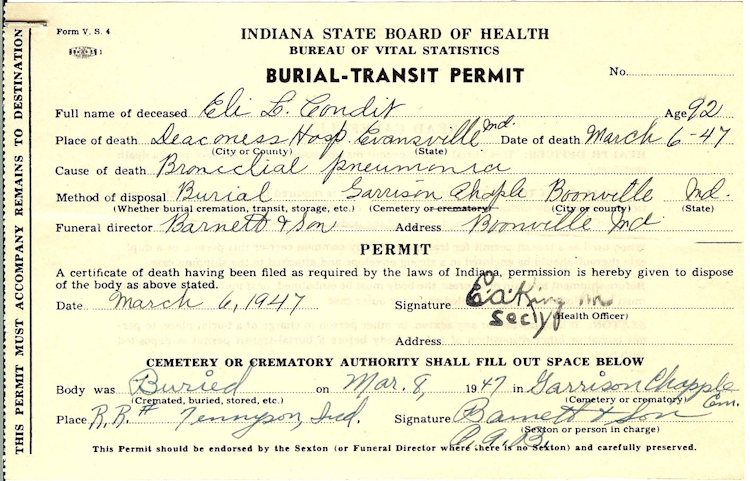 Form V. S. 4
INDIANA STATE BOARD OF HEALTH
BUREAU OF VITAL STATISTICS
BURIAL-TRANSIT PERMIT
No.
Full name of deceased Eli L. Condit Age 92
Place of death Deaconess Hosp. Evansville Ind. Date of death March 6-47
(City or County) (State)
Cause of death Bronchial pneumonia
Method of disposal Burial Garrison Chaple Boonville Ind.
(Whether burial cremation, transit, storage, etc.) (Cemetery or crematory) (City or county) (State)
Funeral director Barnett & Son Address Boonville Ind
PERMIT
A certificate of death having been filed as required by the laws of Indiana, permission is hereby given to dispose
of the body as above stated.
Date March 6, 1947 Signature
Secty
(Health Officer)
Address
CEMETERY OR CREMATORY AUTHORITY SHALL FILL OUT SPACE BELOW
Body was Buried on Mar. 8, 1947 in Garrison Chapple Cem.
(Cremated, buried, stored, etc.) (Cemetery or crematory)
Place R.R.# Tennyson, Ind. Signature Barnett & Son
(Sexton or person in charge)
C. A. B.
This Permit should be endorsed by the Sexton (or Funeral Director where there is no Sexton) and carefully preserved.
THIS PERMIT MUST ACCOMPANY REMAINS TO DESTINATION